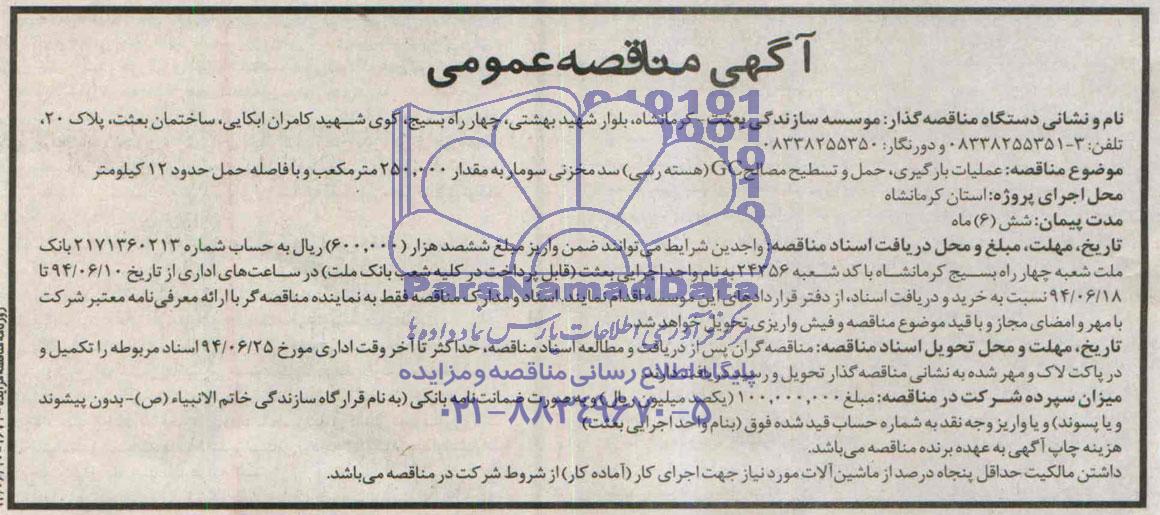 آگهی مناقصه عمومی
نام و نشانی دستگاه مناقصه گذار: موسسه سازندگی بعثت - کرمانشاه، بلوار شهید بهشتی، چهار راه بسیج، کوی شهید کامران ابکایی، ساختمان بعثت، پلاک ۲۰،
تلفن: ۳-۰۸۳۳۸۲۵۵۳۵۱ و دورنگار: ۰۸۳۳۸۲۵۵۳۵۰
موضوع مناقصه: عملیات بارگیری، حمل و تسطیح مصالح GC (هسته رسی) سد مخزنی سومار به مقدار ۲۵۰,۰۰۰ متر مکعب و با فاصله حمل حدود ۱۲ کیلومتر
محل اجرای پروژه: استان کرمانشاه
مدت پیمان: شش (۶) ماه
تاریخ، مهلت، مبلغ و محل دریافت اسناد مناقصه: واجدین شرایط می توانند ضمن واریز مبلغ ششصد هزار (۶۰۰,۰۰۰) ریال به حساب شماره ۲۱۷۱۳۶۰۲۱۳ بانک
ملت شعبه چهار راه بسیج کرمانشاه با کد شعبه ۲۴۳۵۶ به نام واحد اجرایی بعثت (قابل پرداخت در کلیه شعب بانک ملت) در ساعت‌های اداری از تاریخ ۹۴/۰۶/۱۰ تا
۹۴/۰۶/۱۸ نسبت به خرید و دریافت اسناد، از دفتر قراردادهای این موسسه اقدام نمایند. اسناد و مدارک مناقصه فقط به نماینده مناقصه گر با ارائه معرفی نامه معتبر شرکت
با مهر و امضای مجاز و با قید موضوع مناقصه و فیش واریزی تحویل خواهد شد.
تاریخ، مهلت و محل تحویل اسناد مناقصه: مناقصه گران پس از دریافت و مطالعه اسناد مناقصه، حداکثر تا آخر وقت اداری مورخ ۹۴/۰۶/۲۵ اسناد مربوطه را تکمیل و
در پاکت لاک و مهر شده به نشانی مناقصه گذار تحویل و رسید دریافت دارند.
میزان سپرده شرکت در مناقصه: مبلغ ۱۰۰,۰۰۰,۰۰۰ (یکصد میلیون ریال) و به صورت ضمانت‌نامه بانکی (به نام قرارگاه سازندگی خاتم الانبیاء (ص)-بدون پیشوند
و یا پسوند) و یا واریز وجه نقد به شماره حساب قید شده فوق (بنام واحد اجرایی بعثت)
هزینه چاپ آگهی به عهده برنده مناقصه می‌باشد.
داشتن مالکیت حداقل پنجاه درصد از ماشین آلات مورد نیاز جهت اجرای کار (آماده کار) از شروط شرکت در مناقصه می‌باشد.
ParsNamadData
مرکز فرآوری اطلاعات پارس نماد داده‌ها
پایگاه اطلاع رسانی مناقصه و مزایده
۰۲۱-۸۸۳۴۹۶۷۰-۵